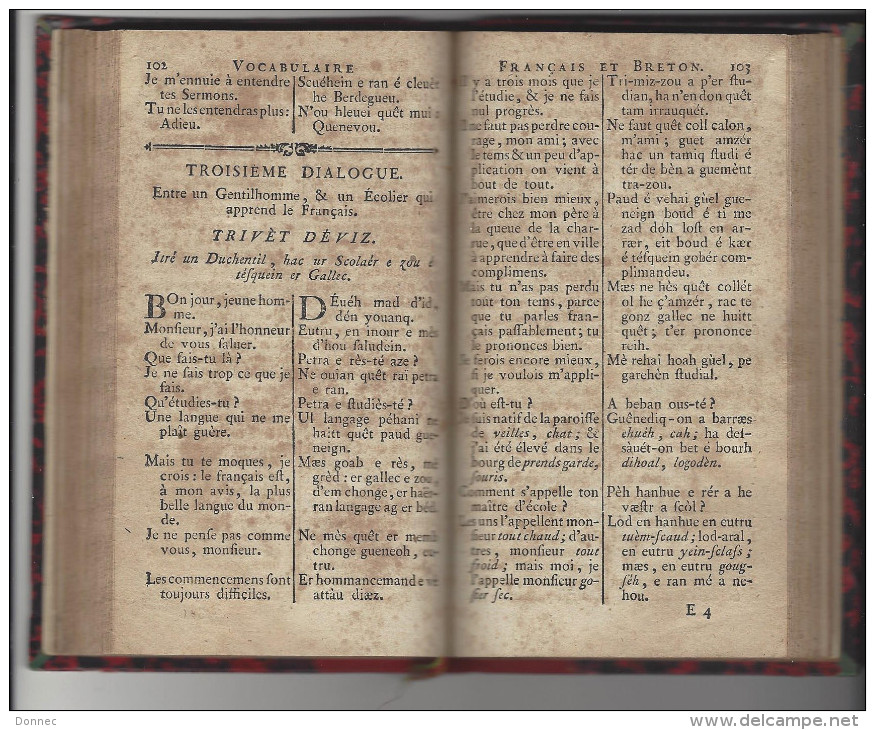 102 VOCABULAIRE
Je m'ennuie à entendre
tes Sermons.
Tu ne les entendras plus :
Adieu.
Scuéhein e ran é cleuet
he Berdegueu.
N'ou hleuei quêt mui :
Quenevou.
TROISIÈME DIALOGUE.
Entre un Gentilhomme, & un Écolier qui
apprend le Français.
TRIVÈT DÉVIZ.
Itré un Duchentil, hac ur Scolaér e zou é
téſquein er Gallec.
BOn jour, jeune hom-
me.
Monſieur, j'ai l'honneur
de vous ſaluer.
Que fais-tu là ?
Je ne ſais trop ce que je
fais.
Qu'étudies-tu ?
Une langue qui ne me
plaît guère.
Mais tu te moques, je
crois : le français eſt,
à mon avis, la plus
belle langue du mon-
de.
Je ne penſe pas comme
vous, monſieur.
Les commencemens ſont
toujours difficiles.
DÉuéh mad d'id,
dén youanq.
Eutru, en inour e mès
d'hou ſaludein.
Petra e rès-té aze ?
Ne ouian quêt rai petra
e ran.
Petra e ſtudiès-té ?
Ul langage péhani ne
haitt quêt paud gue-
neign.
Mæs goab e rès, me
grèd : er gallec e zou,
d'em chonge, er haer-
ran langage ag er béd.
Ne mès quêt er memb
chonge gueneoh, eu-
tru.
Er hommancemande
attàu diæz.
FRANÇAIS ET BRETON. 103
Il y a trois mois que je
l'étudie, & je ne fais
nul progrès.
Il ne faut pas perdre cou-
rage, mon ami ; avec
le tems & un peu d'ap-
plication on vient à
bout de tout.
J'aimerois bien mieux,
être chez mon père à
la queue de la char-
rue, que d'être en ville
à apprendre à faire des
complimens.
Mais tu n'as pas perdu
tout ton tems, parce
que tu parles fran-
çais paſſablement ; tu
le prononces bien.
Je ferois encore mieux,
ſi je voulois m'appli-
quer.
D'où eſt-tu ?
Je ſuis natif de la paroiſſe
de veilles, chat ; &
j'ai été élevé dans le
bourg de prends garde,
ſouris.
Comment s'appelle ton
maître d'école ?
Les uns l'appellent mon-
ſieur tout chaud ; d'au-
tres, monſieur tout
froid ; mais moi, je
l'appelle monſieur go-
ſier ſec.
Tri-miz-zou a p'er ſtu-
dian, ha n'en don quêt
tam irrauquét.
Ne faut quêt coll calon,
m'ami ; guet amzér
hac un tamiq ſtudi é
tér de bèn a guemént
tra-zou.
Paud é vehai gùel gue-
neign boud é ti me
zad dóh loſt en ar-
rær, eit boud é kær
é téſquein gobér com-
plimandeu.
Mæs ne hès quêt collét
ol he ç'amzér, rac te
gonz gallec ne huitt
quêt ; t'er prononce
reih.
Mè rehai hoah gùel, pe
garehèn ſtudial.
A beban ous-té ?
Guênediq-on a barræs-
chuêh, cah ; ha deſ-
sàuét-on bet é bourh
dihoal, logodèn.
Pèh hanhue e rér a he
væſtr a ſcòl ?
Lòd en hanhue en eutru
tuèm-ſcaud ; lod-aral,
en eutru yein-ſclaſs ;
mæs, en eutru goug-
ſéh, e ran mé a ne-
hou.
E 4
Donnec
www.delcampe.net